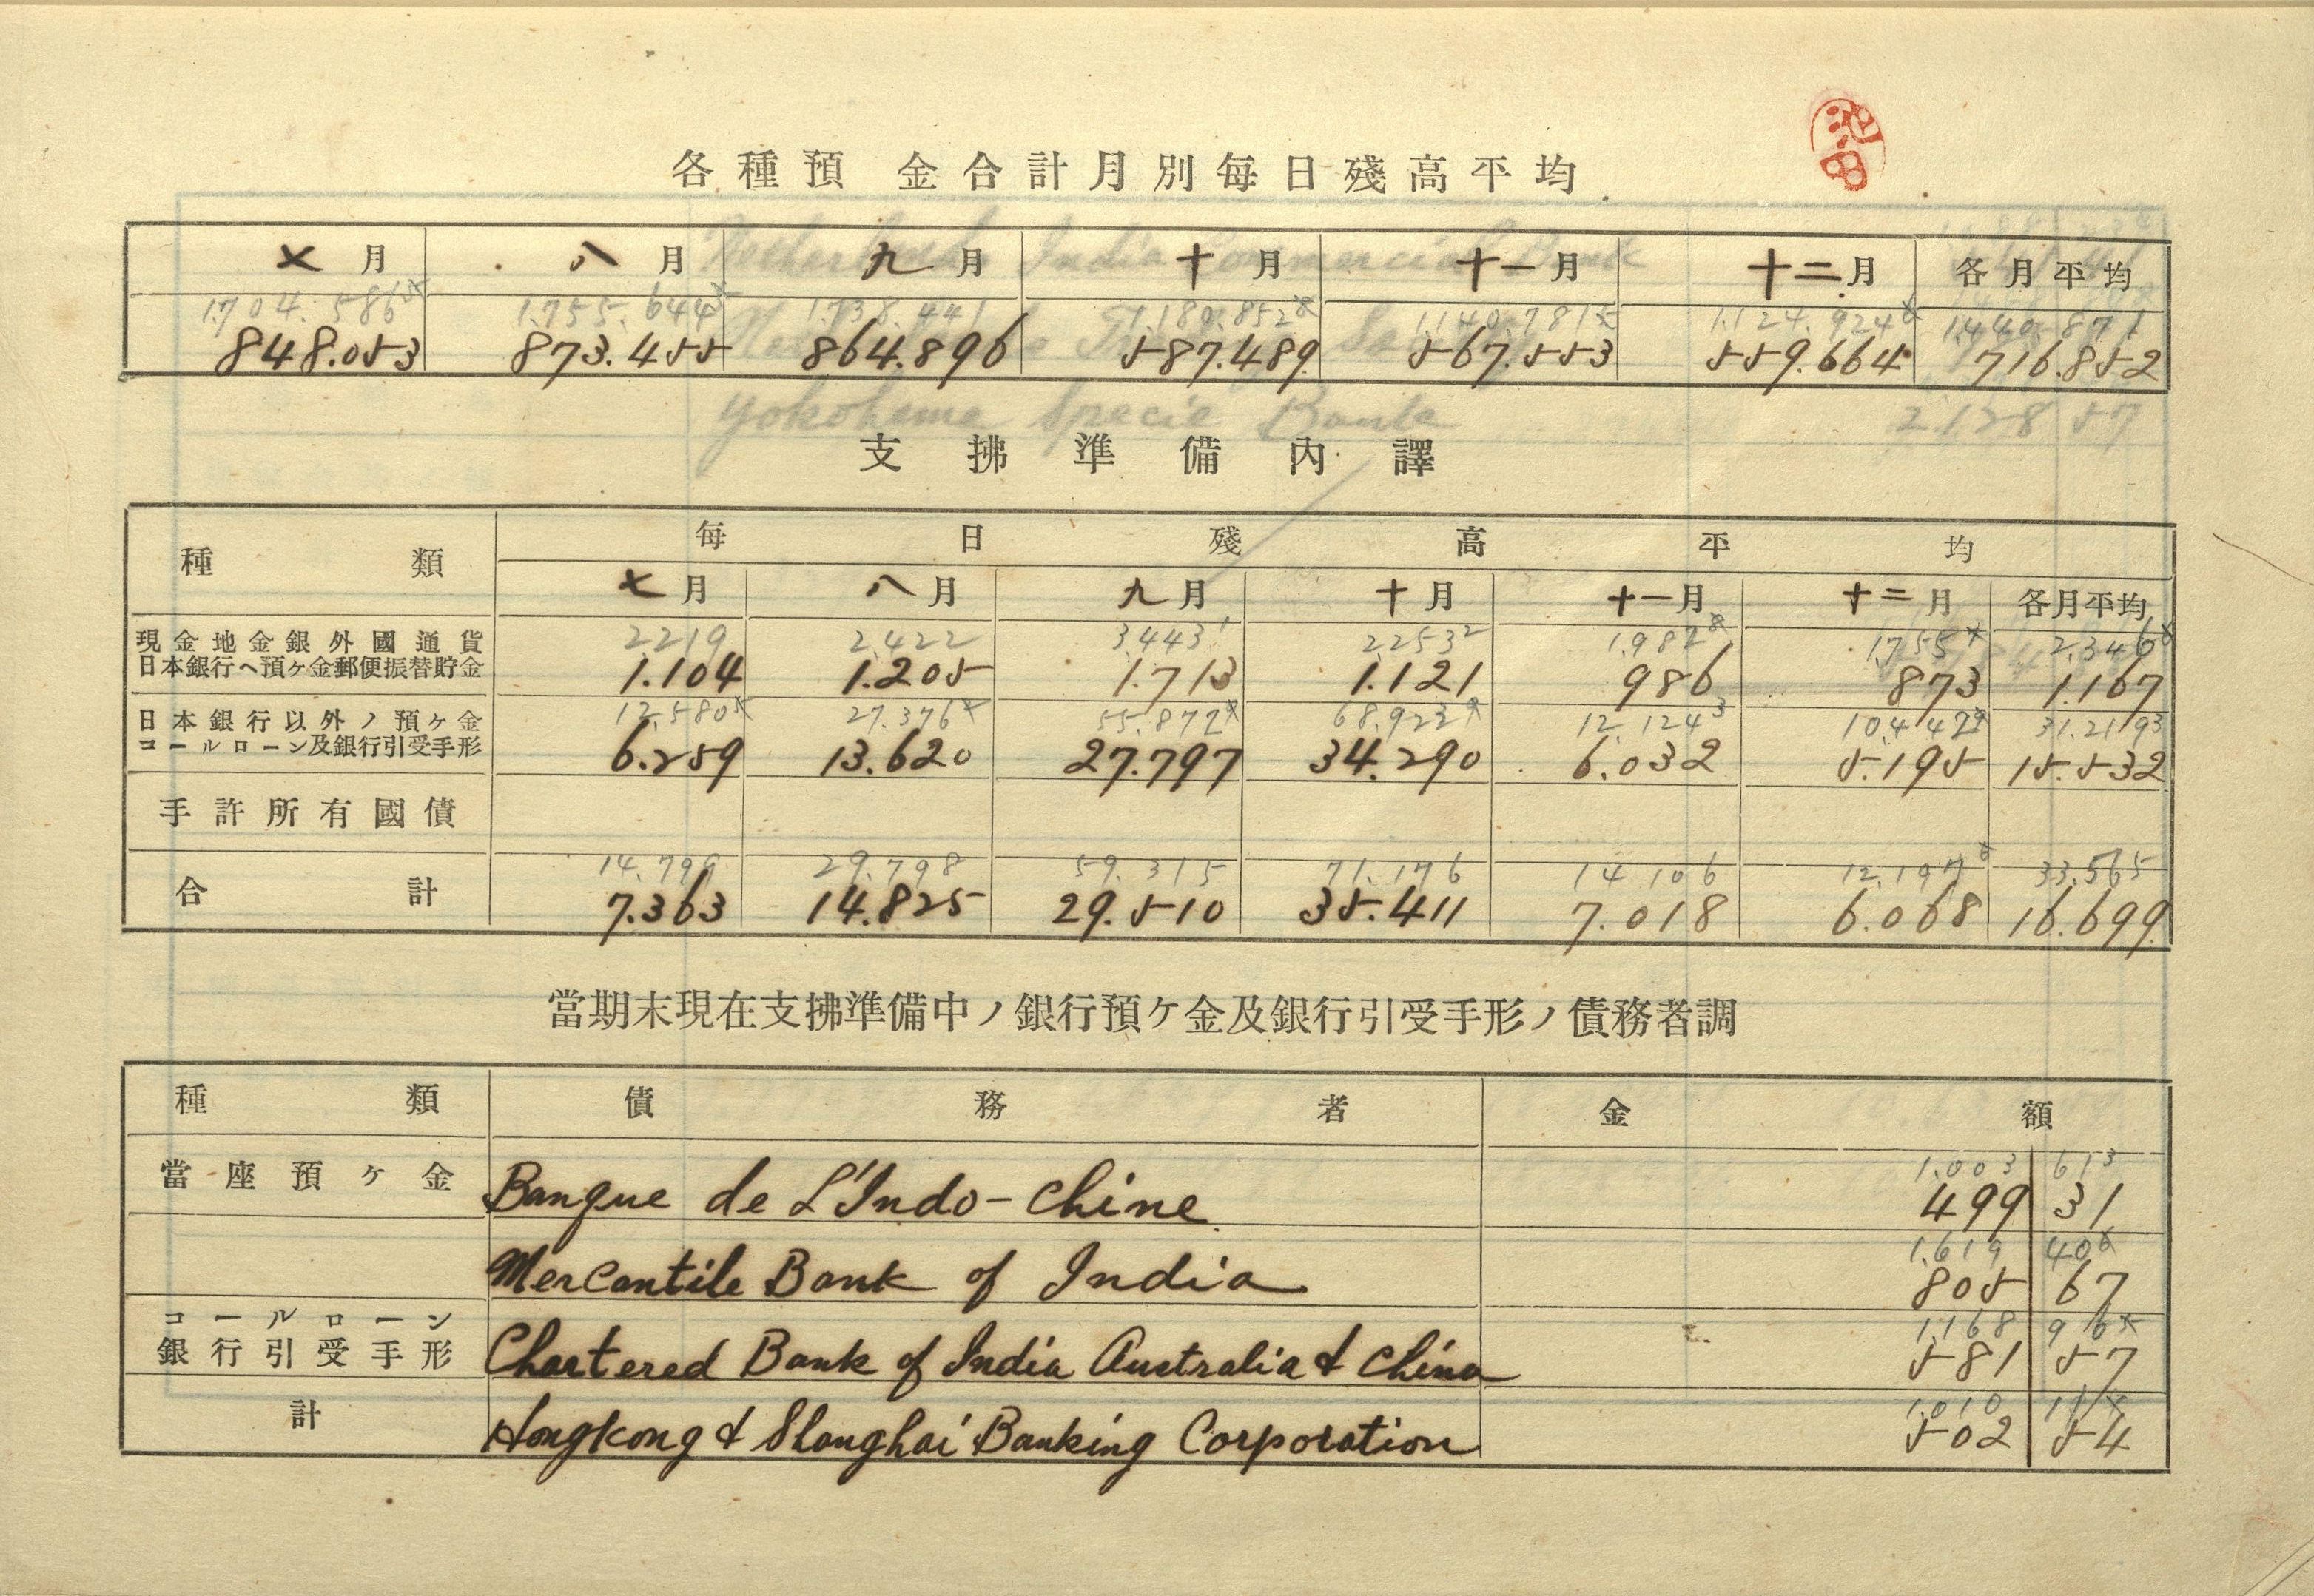 池田
各種預金合計月別每日殘高平均
七月 八月 九月 十月 十一月 十二月 各月平均
1.704.586 1.755.644 1.738.441 1.180.852 1.140.781 1.124.924 1.440.871
848.053 873.455 864.896 587.489 567.553 559.664 716.852
支拂準備內譯
種類 每日殘高平均
七月 八月 九月 十月 十一月 十二月 各月平均
2.219 2.422 3.443 2.253 1.982 1.755 2.346
現金地金銀外國通貨
日本銀行ヘ預ヶ金郵便振替貯金 1.104 1.205 1.713 1.121 986 873 1.167
12.580 27.376 55.872 68.923 12.124 10.442 31.219
日本銀行以外ノ預ヶ金
コールローン及銀行引受手形 6.259 13.620 27.797 34.290 6.032 5.195 15.532
手許所有國債
14.799 29.798 59.315 71.176 14.106 12.197 33.565
合計 7.363 14.825 29.510 35.411 7.018 6.068 16.699
當期末現在支拂準備中ノ銀行預ケ金及銀行引受手形ノ債務者調
種類 債務者 金額
1.003 613
當座預ヶ金 Banque de L'Indo-Chine 499 31
1.619 406
Mercantile Bank of India 805 67
コールローン 1.168 965
銀行引受手形 Chartered Bank of India Australia & China 581 57
1.010
計 Hongkong & Shanghai Banking Corporation 502 54